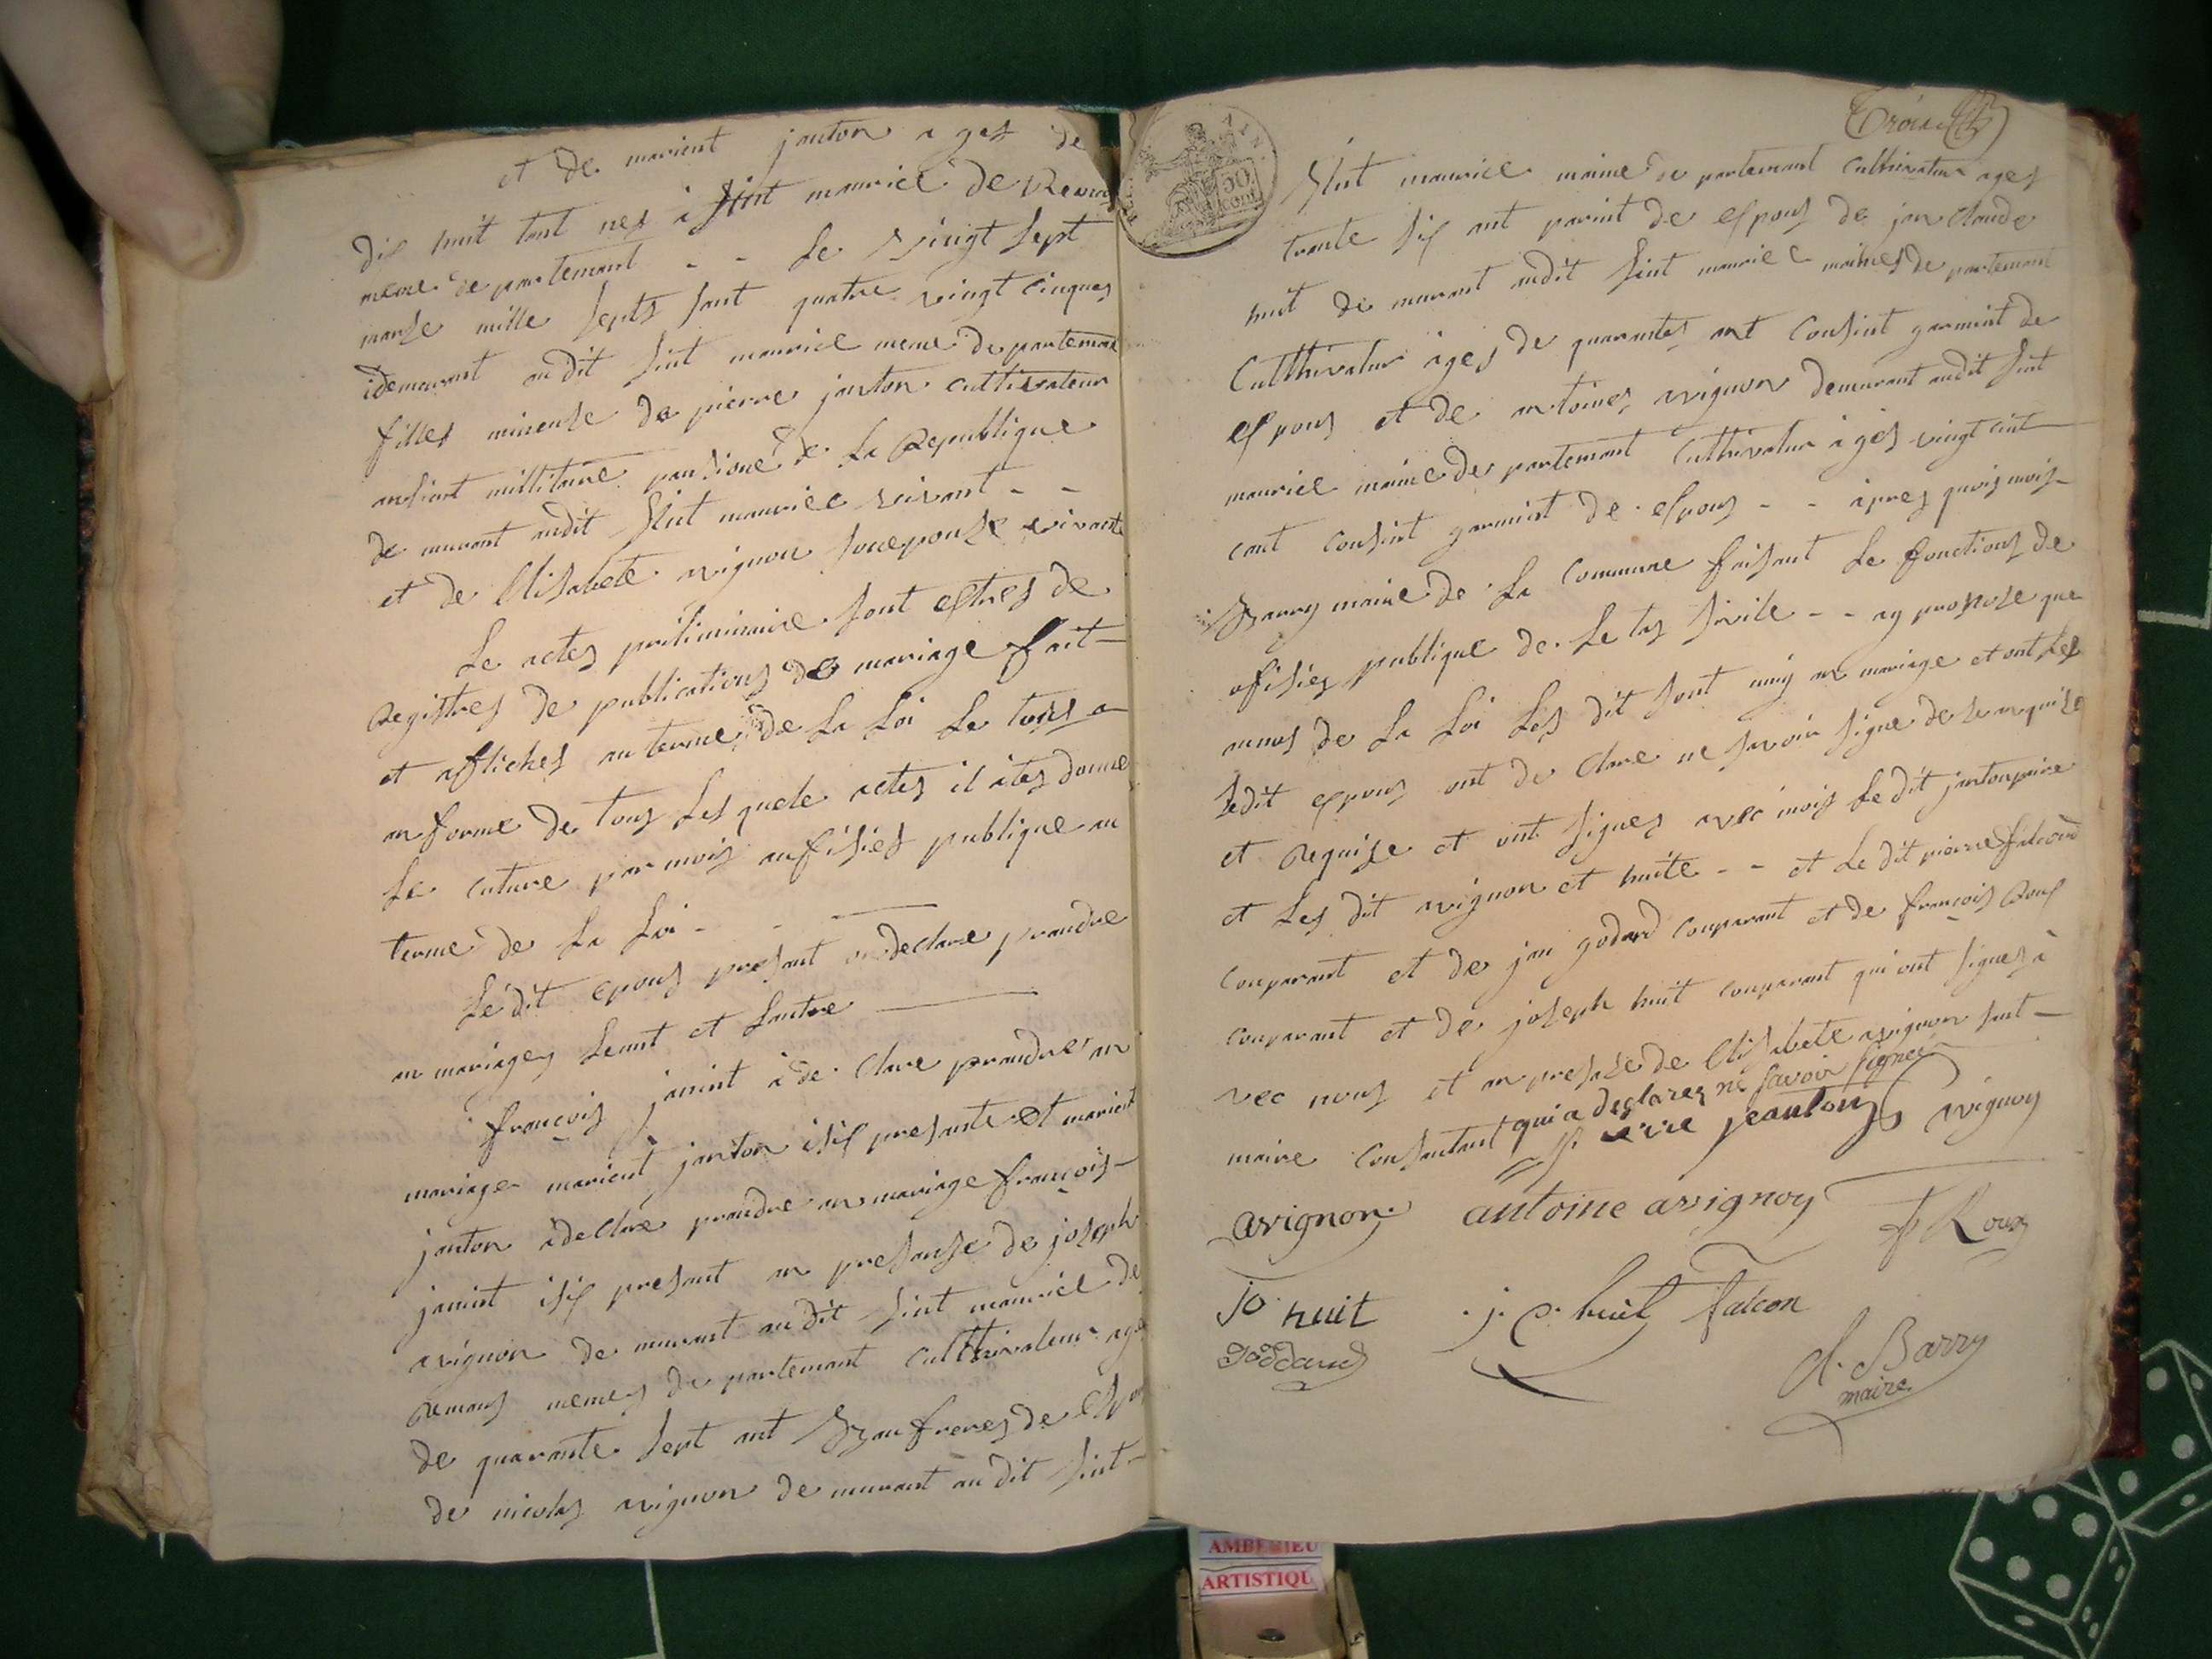 et de marient janton ages de
dis huit tant nes a sint maurice de Remans
meme departemant - - le vingt sept
marse mille septs sant quatre vingt cinques
demeurant audit sint maurice meme departemant
filles mineuse de pierre janton cultivateur
ansient millitaire pansione de la Republique
de murant audit sint maurice vivant - -
et de Elisabete avignon son epouse vivante
Le actes preliminaire sont estres de
Registres de publications de mariage fait
et affiches au terme de la loi le tous a
an forme de tous les quele actes il ates donne
le cuture par mois aufisies publique au
terme de la loi -
Le dit epous presant on declare prandre
an mariages leunt et lautre
françois janint a de clare prandre an
mariage marient janton isis presante et marient
janton a declare prandre an mariage françois
janint isis presant an presanse de joseph
avignon de murant au dit sint maurice de
Remans memes departemant culttivateur age
de quarante sept ant Bau freres de Espous
de nicolas avignon de murant au dit sint
Troix
sint maurice maime departemant culthivatur ages
trante sis ant parint de espous de jan claude
huit de murant audit sint maurice maimes departemant
Cultthivatur ages de quarantes ant cousint garmint de
espous et de antoines avignon demurant audit sint
maurice maime departemant Culthivatur ages vingt cint
cant cousint garmint de espous - - apres quois mois
Barry maire de la commune faisant le fonctions de
ofisies publique de le tas sivile - - ay pronoze que
aunos de la loi les dit sont uniy an mariage et ont les
ledit espous ont de clare ne savoir signe de se anquise
et Requise et ont signes avec mois le dit janton paire
et les dit avignon et huite - - et le dit pierre falcon
comparant et de jan godard comparant et de françois Rous
comparant et de joseph huit comparant qui ont signes a
vec nous et an presase de Elisabete avignon sint
maire consantant qui a declarez ne savoir signer
pierre jeanton avignon
avignon antoine avignon f Roux
jo huit j. c. huit falcon
goddard
d. Barry
maire
50
cent
AMBERIEU
ARTISTIQU